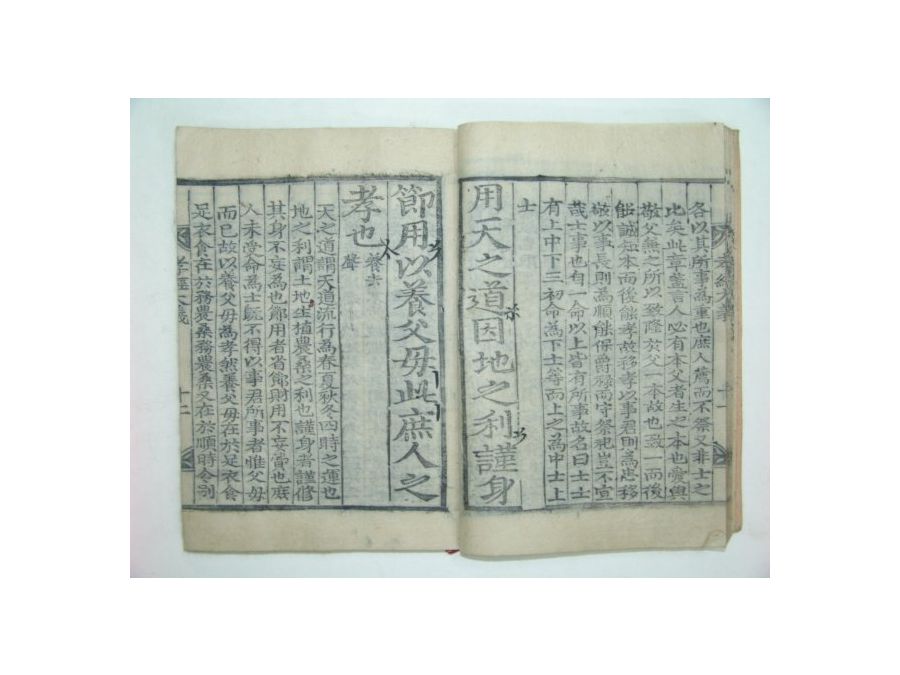 孝經大義
十一
各以其所事為重也庶人薦而不祭又非士之
比矣此章盖言人必有本父者生之本也愛與
敬父無之所以致隆於父一本故也致一而後
能誠知本而後能孝故移孝以事君則為忠移
敬以事長則為順能保爵祿而守祭祀豈不宜
哉士事也自一命以上皆有所事故名曰士士
有上中下三初命為下士等而上之為中士上
士
用天之道因地之利謹身
節用以養父母此庶人之
孝也養去聲
天之道謂天道流行為春夏秋冬四時之運也
地之利謂土地生植農桑之利也謹身者謹修
其身不妄為也節用者省節財用不妄費也庶
人未受命為士旣不得以事君所事者惟父母
而已故以養父母為孝然養父母在於足衣食
足衣食在於務農桑務農桑又在於順時令別
孝經大義
十二